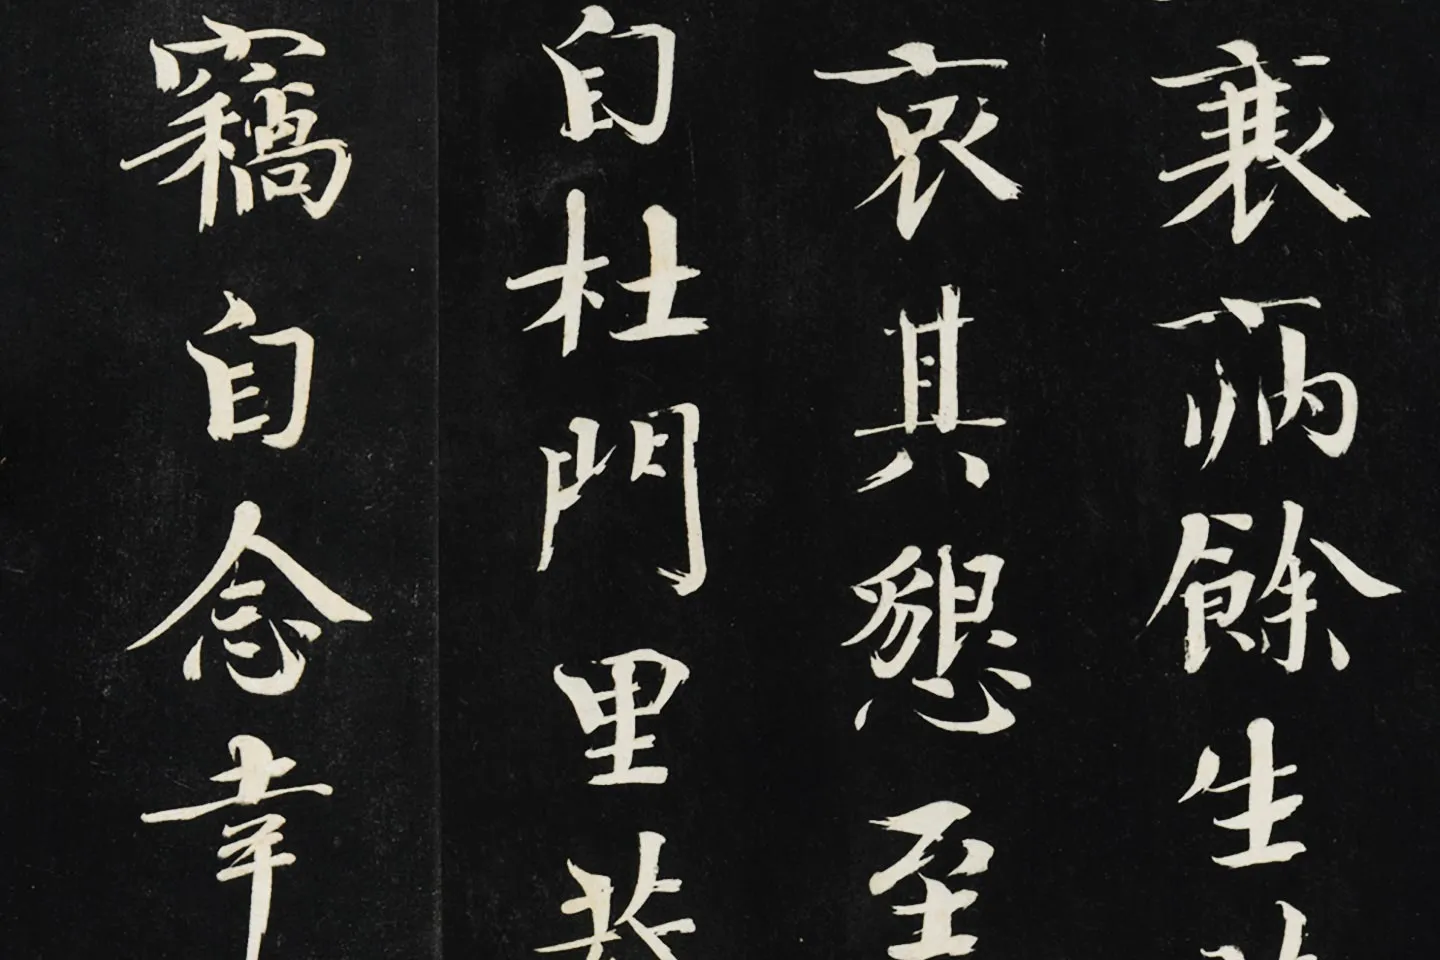 衰病餘生
哀其懇至
自杜門里
竊自念幸